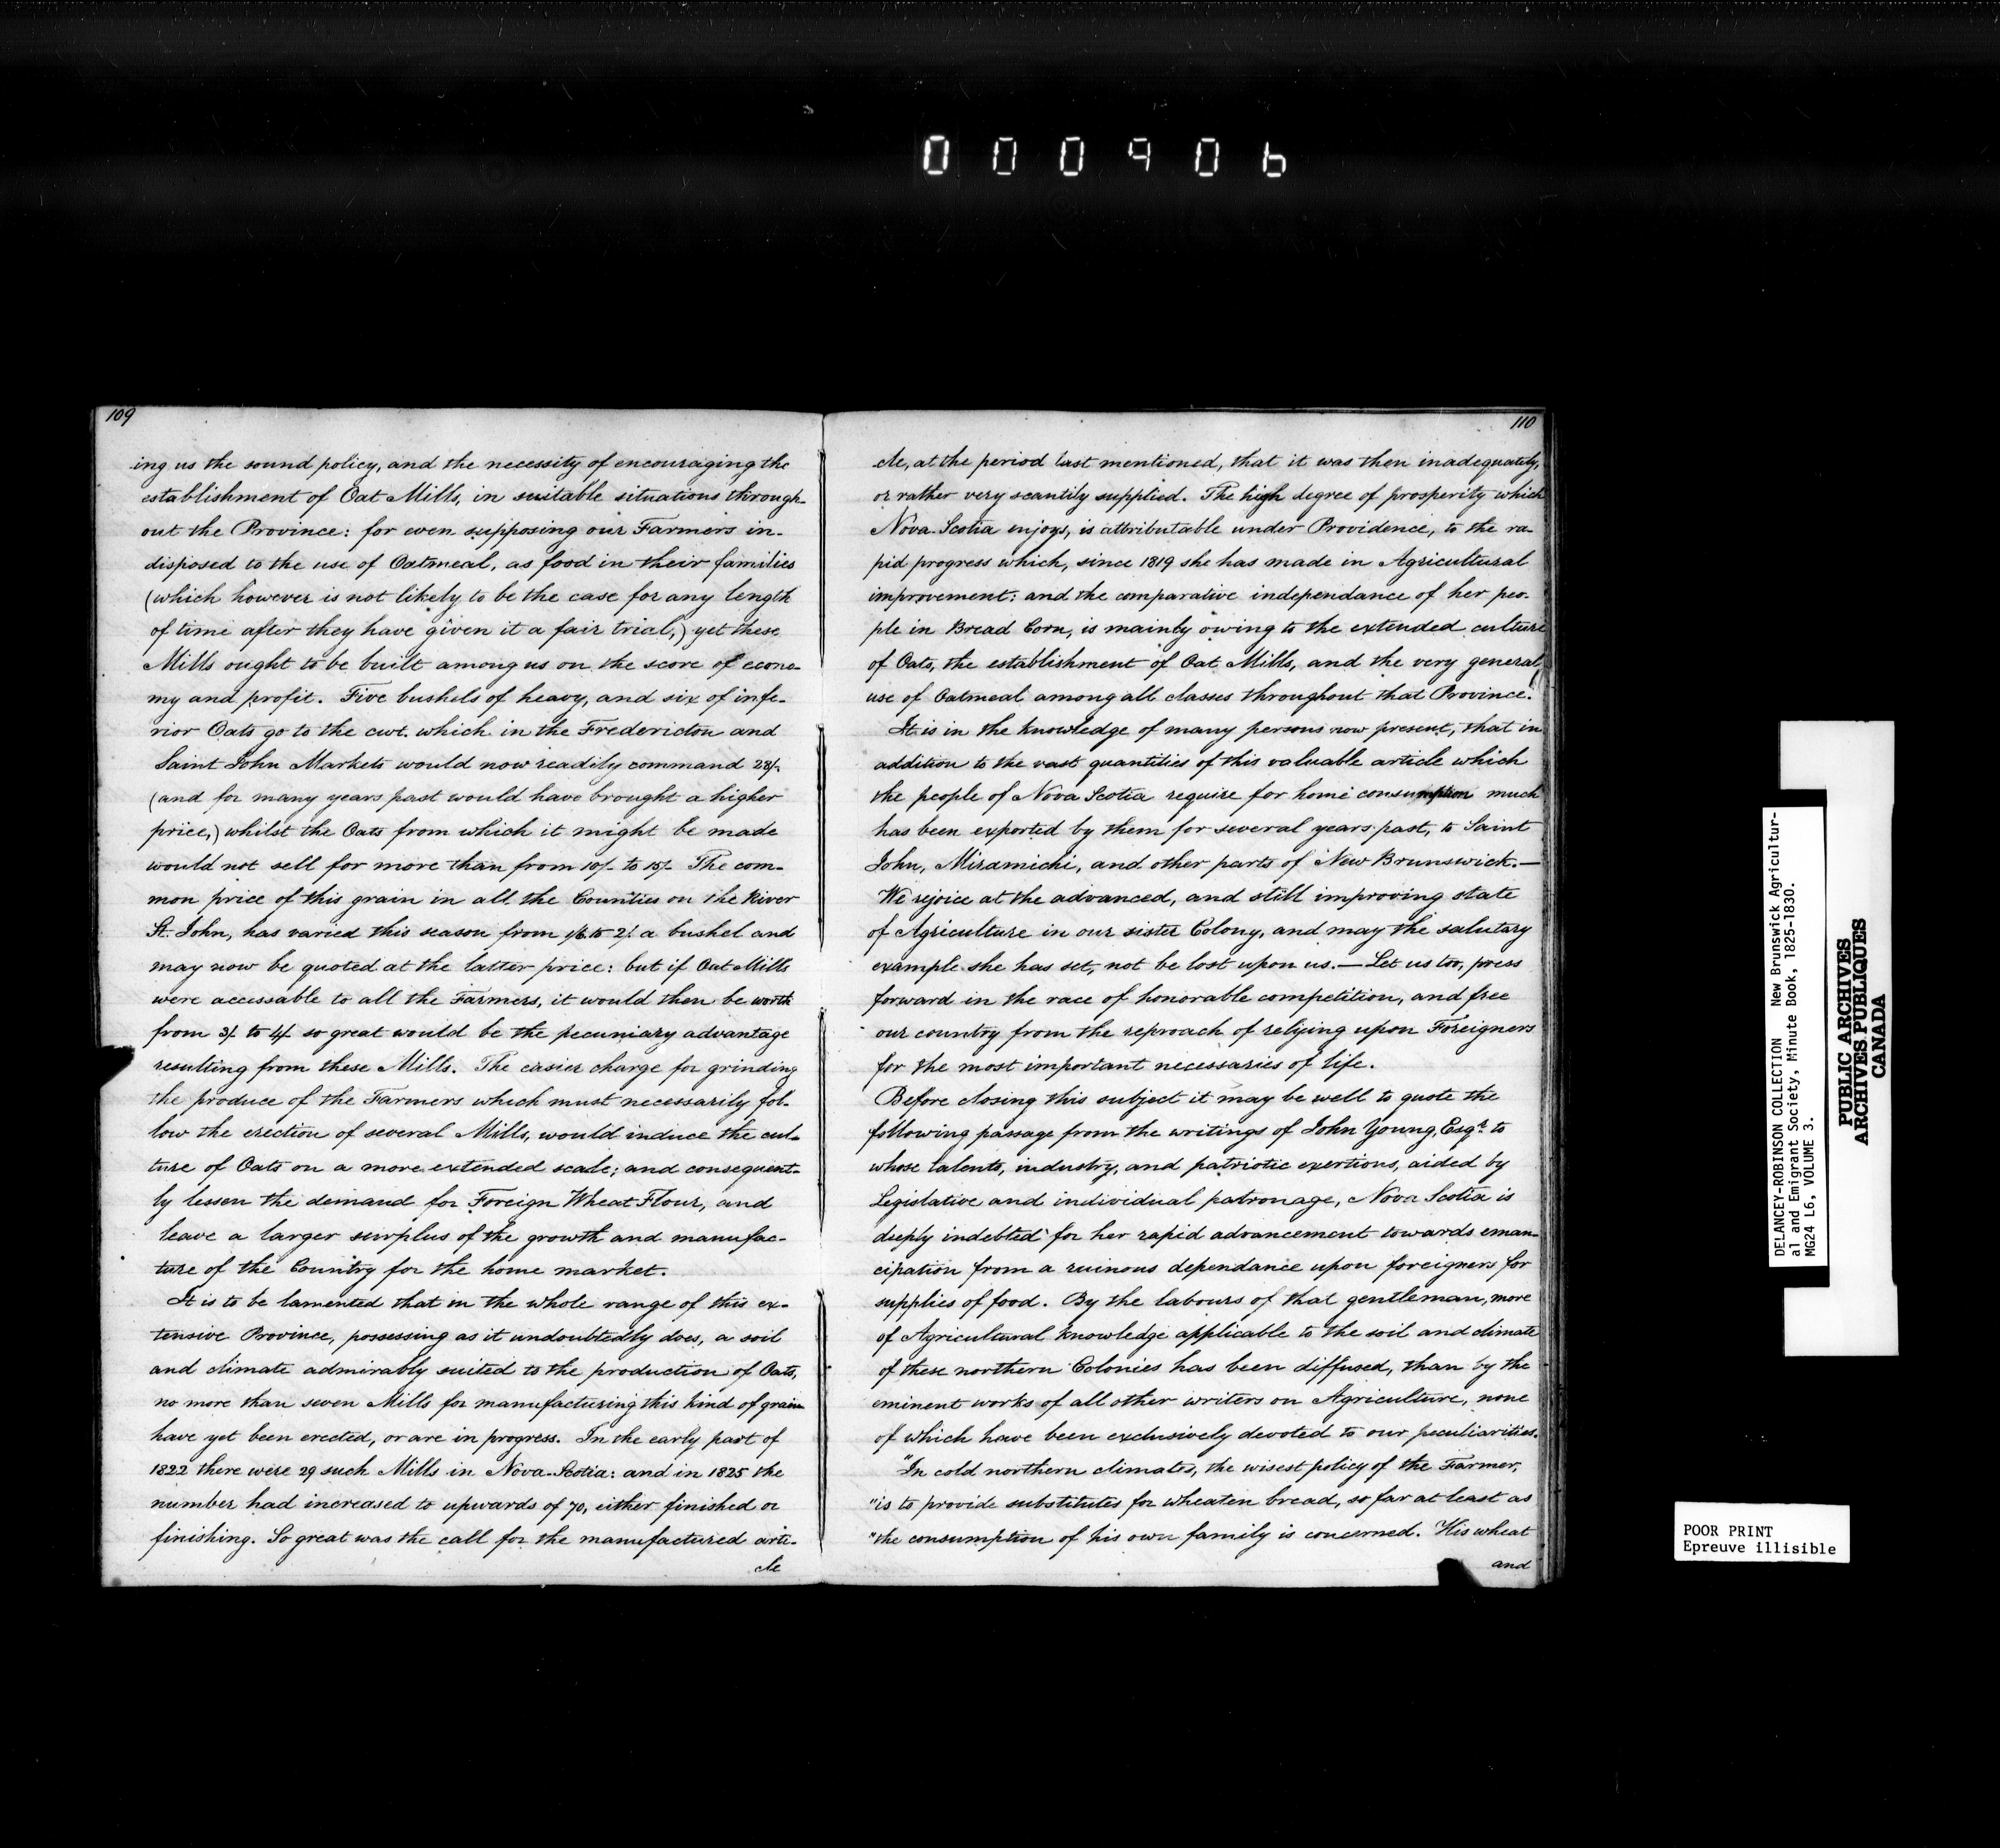 000906
109
ing us the sound policy, and the necessity of encouraging the
establishment of Oat Mills, in suitable situations through-
out the Province: for even supposing our Farmers in-
disposed to the use of Oatmeal, as food in their families
(which however is not likely to be the case for any length
of time after they have given it a fair trial,) yet these
Mills ought to be built among us on the score of econo-
my and profit. Five bushels of heavy, and six of infe-
rior Oats go to the cwt. which in the Fredericton and
Saint John Markets would now readily command 28/-
(and for many years past would have brought a higher
price,) whilst the Oats from which it might be made
would not sell for more than from 10/- to 15/- The com-
mon price of this grain in all the Counties on the River
St. John, has varied this season from 1/6 to 2/ a bushel and
may now be quoted at the latter price: but if Oat Mills
were accessable to all the Farmers, it would then be worth
from 3/ to 4/ so great would be the pecuniary advantage
resulting from these Mills. The easier charge for grinding
the produce of the Farmers which must necessarily fol-
low the erection of several Mills, would induce the cul-
ture of Oats on a more extended scale; and consequent-
ly lessen the demand for Foreign Wheat Flour, and
leave a larger surplus of the growth and manufac-
ture of the Country for the home market.
It is to be lamented that in the whole range of this ex-
tensive Province, possessing as it undoubtedly does, a soil
and climate admirably suited to the production of Oats,
no more than seven Mills for manufacturing this kind of grain
have yet been erected, or are in progress. In the early part of
1822 there were 29 such Mills in Nova-Scotia: and in 1825 the
number had increased to upwards of 70, either finished or
finishing. So great was the call for the manufactured arti-
cle
110
cle, at the period last mentioned, that it was then inadequately,
or rather very scantily supplied. The high degree of prosperity which
Nova-Scotia enjoys, is attributable under Providence, to the ra-
pid progress which, since 1819 she has made in Agricultural
improvement: and the comparative independance of her peo-
ple in Bread Corn, is mainly owing to the extended culture
of Oats, the establishment of Oat Mills, and the very general
use of Oatmeal among all classes throughout that Province.
It is in the knowledge of many persons now present, that in
addition to the vast quantities of this valuable article which
the people of Nova Scotia require for home consumption much
has been exported by them for several years past, to Saint
John, Miramichi, and other parts of New Brunswick.—
We rejoice at the advanced, and still improving state
of Agriculture in our sister Colony, and may the salutary
example she has set, not be lost upon us.— Let us too, press
forward in the race of honorable competition, and free
our country from the reproach of relying upon Foreigners
for the most important necessaries of life.
Before closing this subject it may be well to quote the
following passage from the writings of John Young, Esqr. to
whose talents, industry, and patriotic exertions, aided by
Legislative and individual patronage, Nova Scotia is
deeply indebted for her rapid advancement towards eman-
cipation from a ruinous dependance upon foreigners for
supplies of food. By the labours of that gentleman, more
of Agricultural knowledge applicable to the soil and climate
of these northern Colonies has been diffused, than by the
eminent works of all other writers on Agriculture, none
of which have been exclusively devoted to our peculiarities.
"In cold northern climates, the wisest policy of the Farmer,
"is to provide substitutes for wheaten bread, so far at least as
"the consumption of his own family is concerned. His wheat
and
DELANCEY-ROBINSON COLLECTION New Brunswick Agricultur-
al and Emigrant Society, Minute Book, 1825-1830.
MG24 L6, VOLUME 3.
PUBLIC ARCHIVES
ARCHIVES PUBLIQUES
CANADA
POOR PRINT
Epreuve illisible